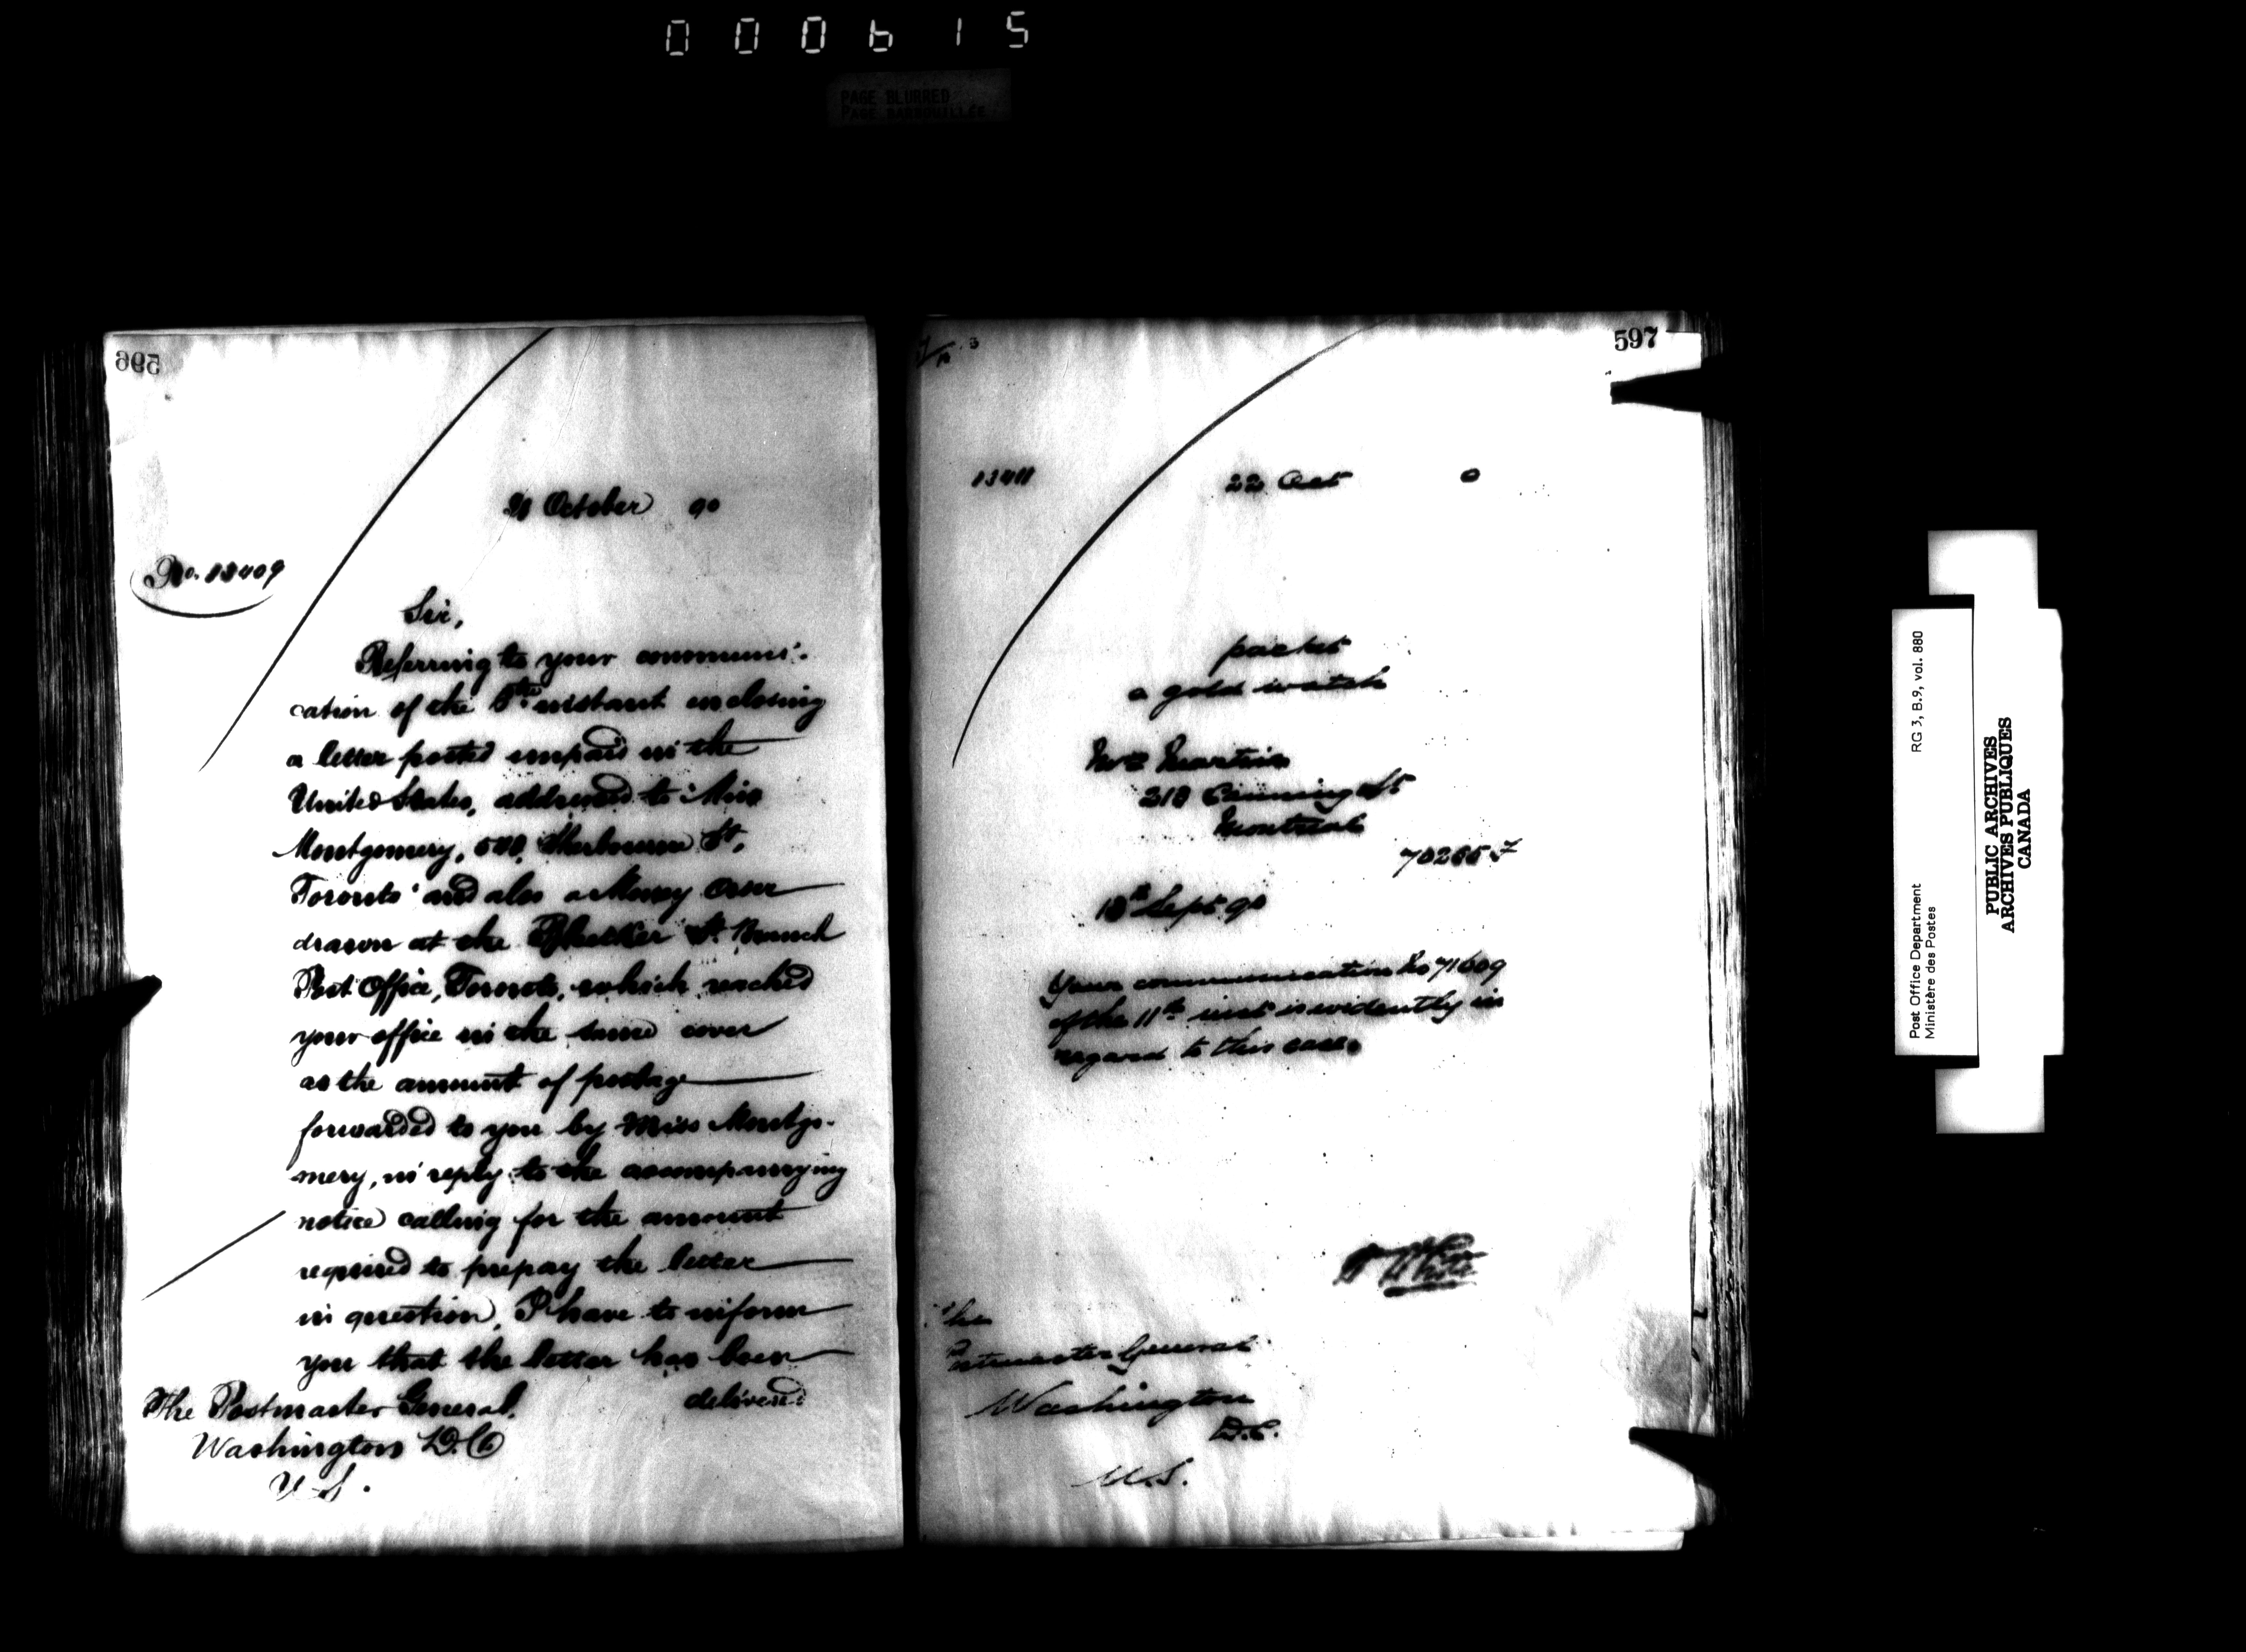 000615
PAGE BLURRED
PAGE BARBOUILLÉE
596
21 October 90
No. 13409
Sir,
Referring to your communi-
cation of the instant enclosing
a letter posted unpaid in the
United States, addressed to Miss
Montgomery, Sherbourne St,
Toronto and also a Money Order
drawn at the St. Branch
Post Office, Toronto, which reached
your office in the same cover
as the amount of postage
forwarded to you by Miss Montgo-
mery, in reply to the accompanying
notice calling for the amount
required to prepay the letter
in question, I have to inform
you that the letter has been
delivered
The Postmaster General,
Washington D.C.
U.S.
597
13411 22 Oct 0
packet
a gold watch
Mrs Martin
Montreal
70265 F
18th Sept 90
Your communication No 71609
of the 11th inst is evidently in
regard to this case.
White
The
Postmaster General
Washington
D.C.
U.S.
Post Office Department
Ministère des Postes
RG 3, B.9, vol. 880
PUBLIC ARCHIVES
ARCHIVES PUBLIQUES
CANADA